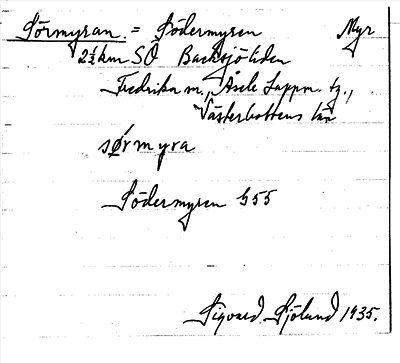 Sörmyran = Södermyren Myr
2½ km SO Backsjöliden
Fredrika sn., Åsele Lappm. tg.,
Västerbottens län
sørmyra
Södermyren G55
Sigvard Sjölund 1935.